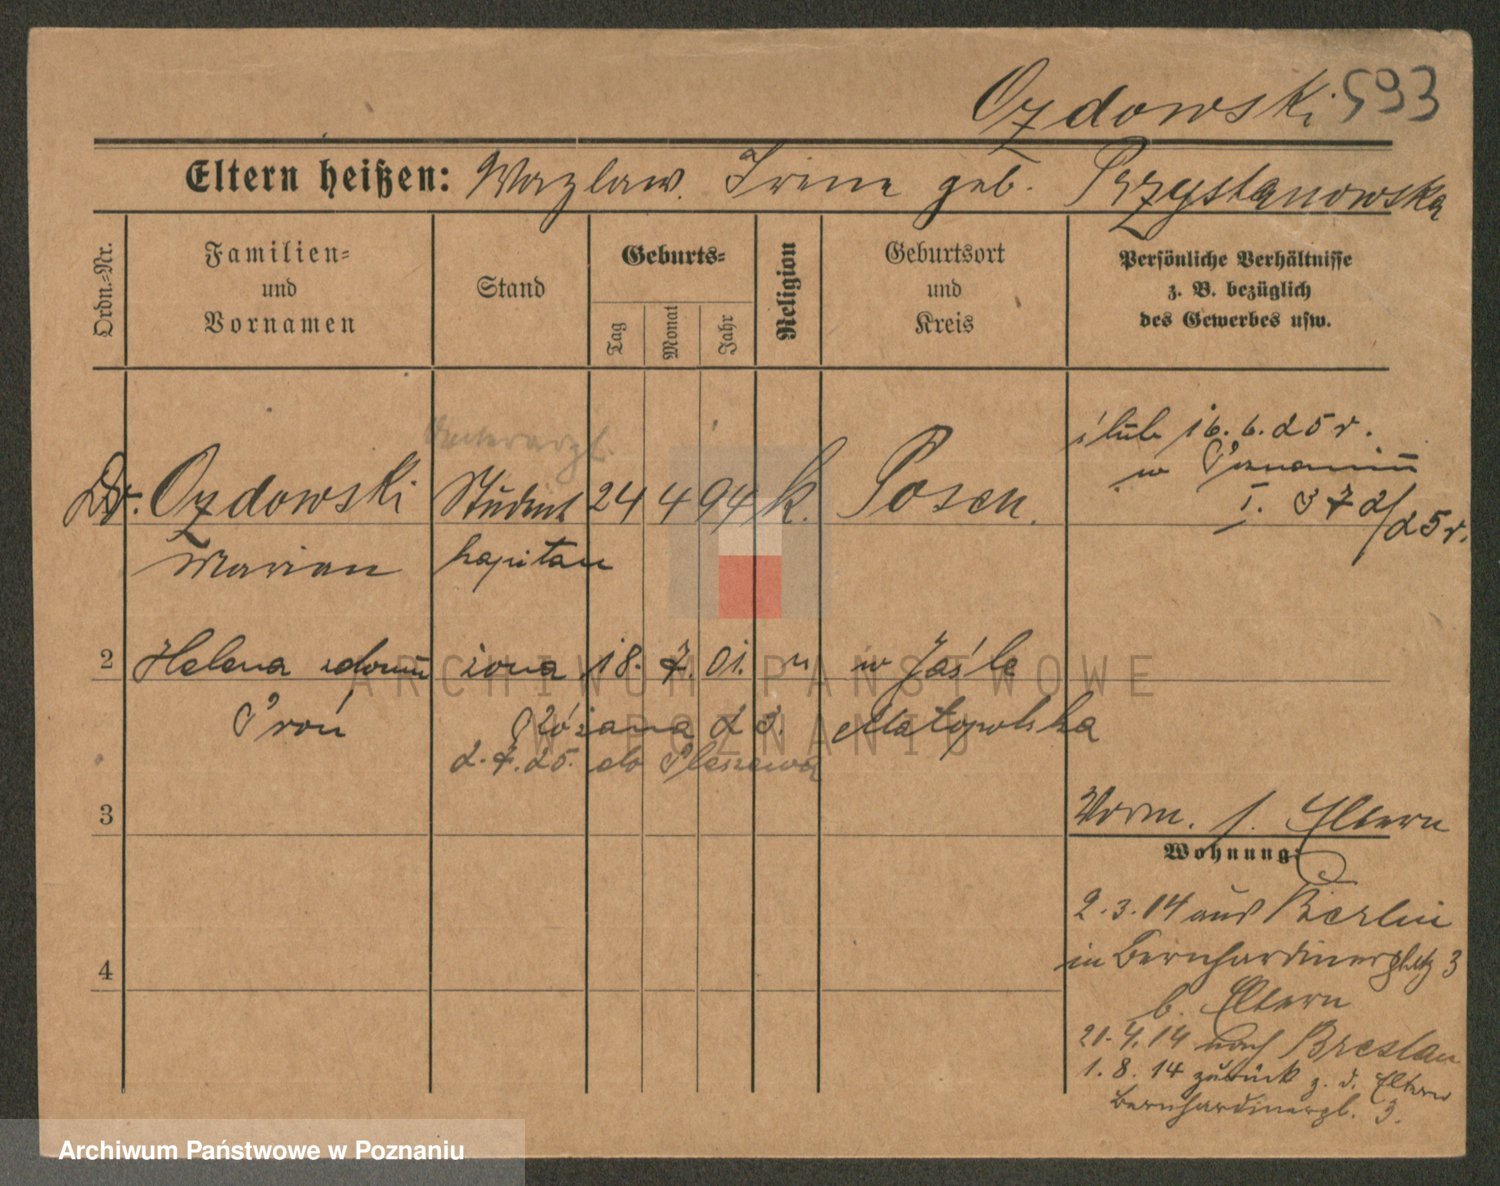 Ozdowski 593
Eltern heißen: Wazlaw. Irene geb. Przystanowska
Ordn.-Nr.
Familien-
und
Vornamen
Stand
Geburts-
Tag
Monat
Jahr
Religion
Geburtsort
und
Kreis
Persönliche Verhältnisse
z. B. bezüglich
des Gewerbes usw.
Dr. Ozdowski Student 24 4 94 k. Posen.
Marian kapitan
ślub 16.6.25 r.
w Poznaniu
I. 372/25 r.
2 Helena żona 18. 7. 01. w Jaśle
Proń Różana 23. Małopolska
2.7.25. do Pleszewa
3
Vorm. s. Eltern
Wohnung:
2.3.14 aus Berlin
in Bernhardinerplatz 3
b. Eltern
21.4.14 nach Breslau
1.8.14 zurück z. d. Eltern
Bernhardinerpl. 3.
4
ARCHIWUM PAŃSTWOWE
W POZNANIU
Archiwum Państwowe w Poznaniu